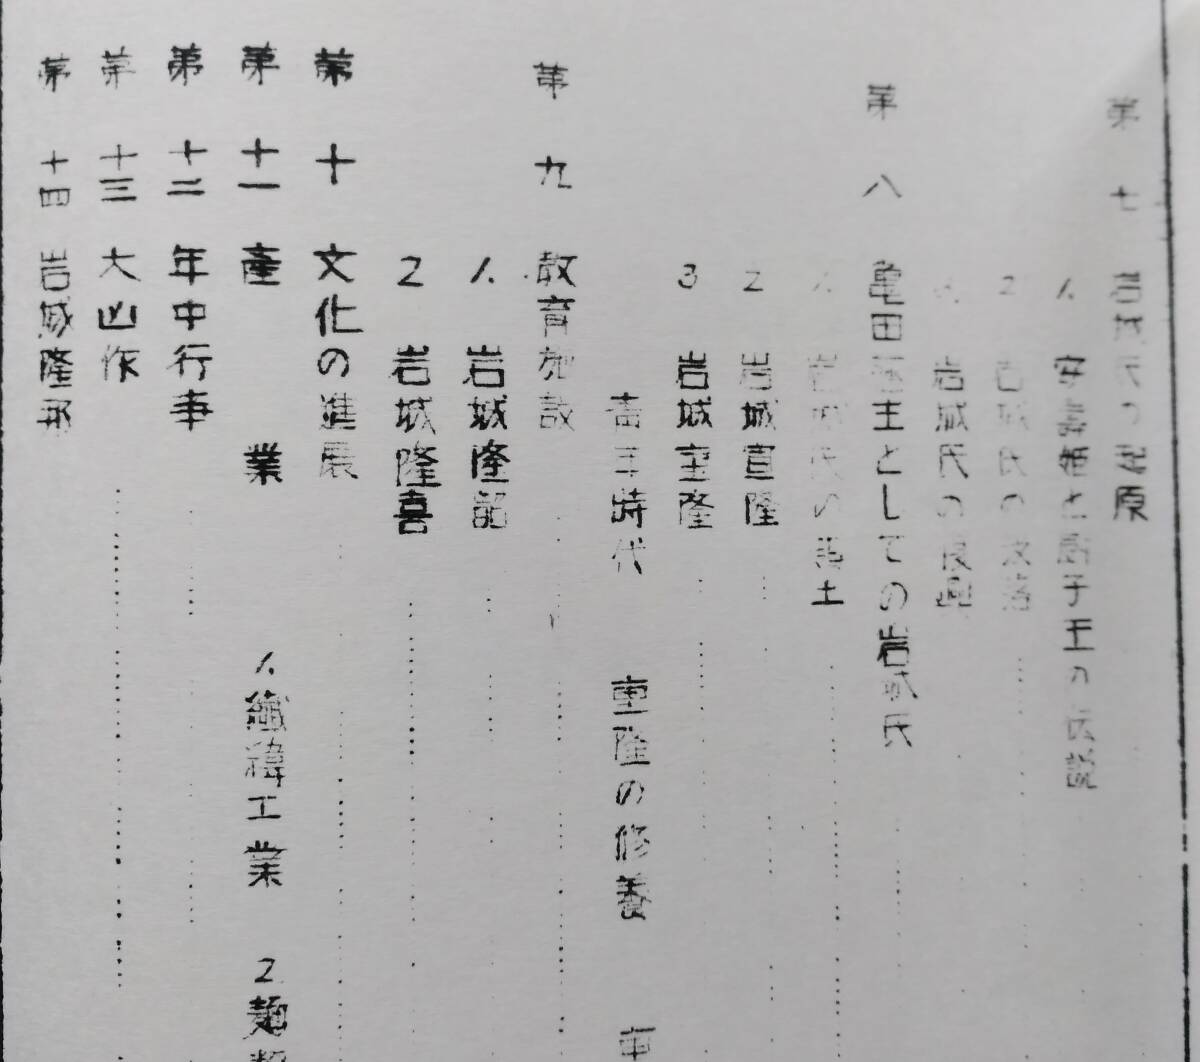 第七 岩城氏の起原
1. 安寿姫と厨子王の伝説
2 岩城氏の没落
岩城氏の
第八 亀田藩主としての岩城氏
岩城氏の 土
2 岩城宣隆
3 岩城重隆
青年時代 重隆の修養
第九 教育施設
1. 岩城隆韶
2 岩城隆喜
第十 文化の進展
第十一 產業 1.繊緯工業 2麺
第十二 年中行事
第十三 大凶作
第十四 岩城隆邦